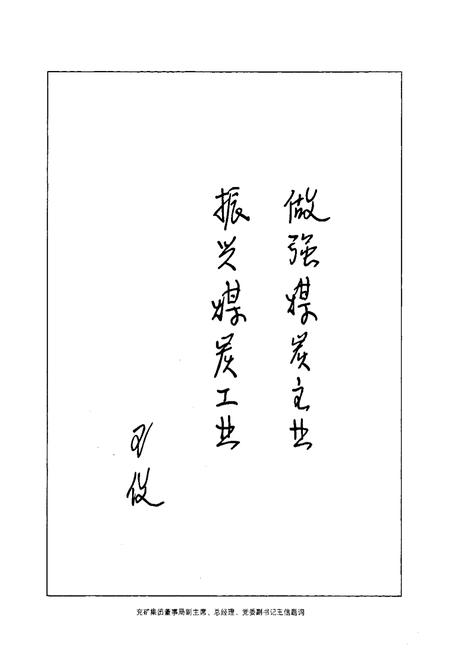 做强煤炭主业
振兴煤炭工业
王信
兖矿集团董事局副主席、总经理、党委副书记王信题词